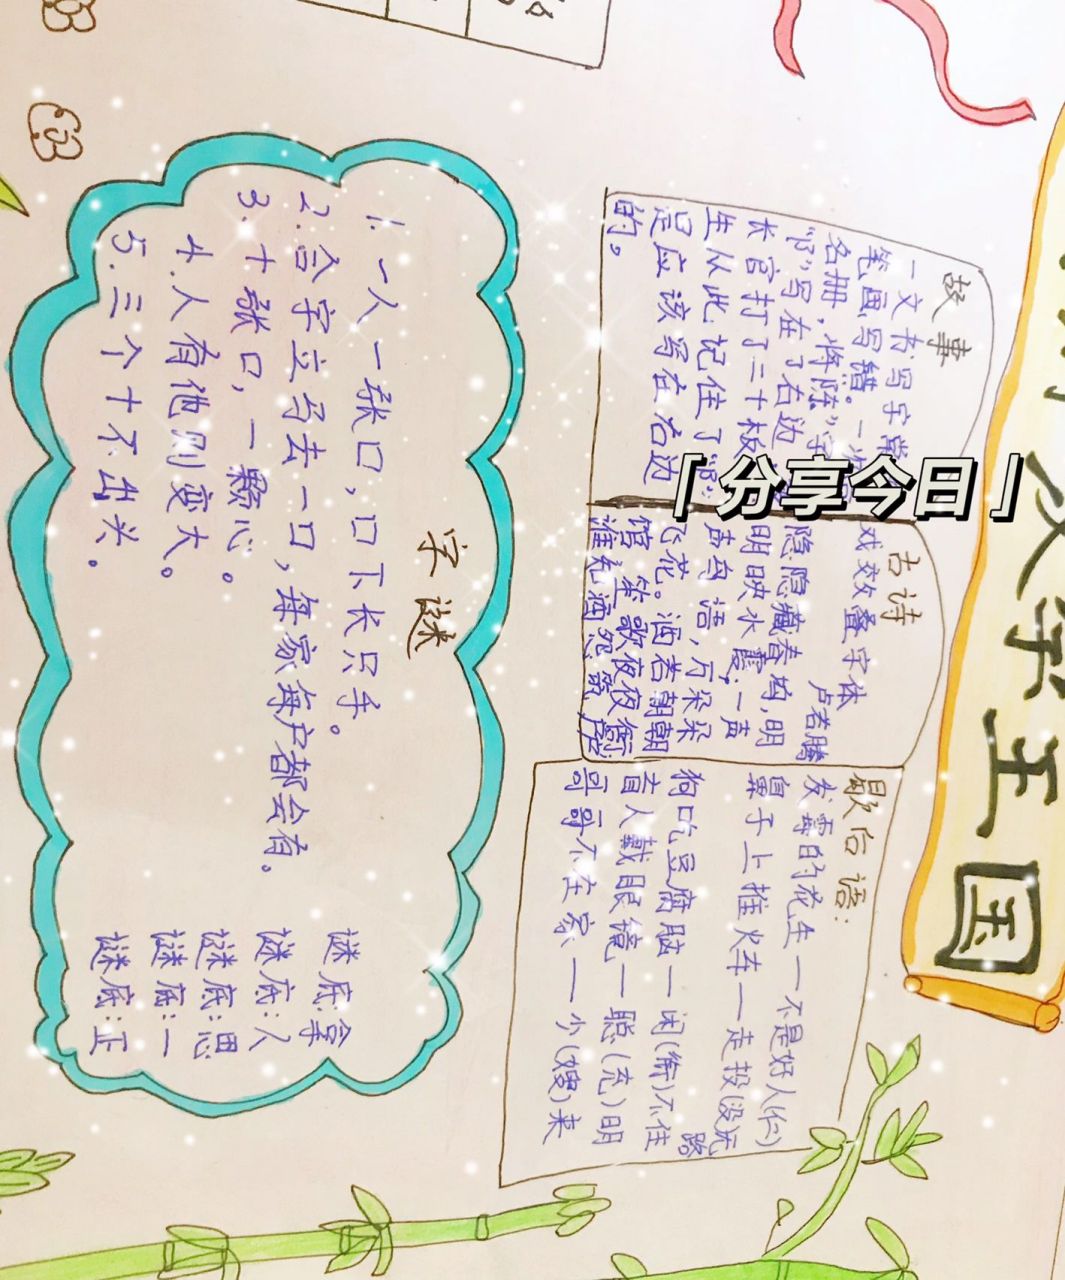 字王国
故事
一文书写字常
笔画写错。一次
名册,将"陈"字
"阝"写在了右边
长官打了二十板
生从此记住了"阝"
是应该写在右边
的。
古诗
戏效叠字体
卢若腾
隐隐藏春坞,明
明映水霞,一声
声鸟语,万朵朵
飞花。酒若朝朝
馆,笙歌夜夜衙
谁知酒
歇后语:
发霉的花生一不是好人(仁)
鼻子上推火车一走投(没)无路
狗吃豆腐脑一闲(衔)不住
盲人戴眼镜一聪(充)明
哥哥不在家一少(嫂)来
字谜
1.一人一张口,口下长只手。
2.合字立马去一口,每家每户都会有。
3.十张口,一颗心。
4.人有他则变大。
5.三个十不出头。
谜底:拿
谜底:人
谜底:思
谜底:一
谜底:正
「分享今日」